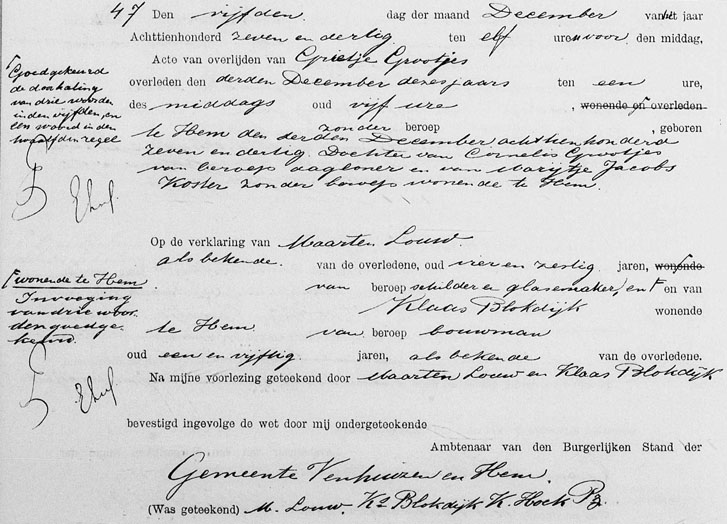 47 Den vijfden. dag der maand December van het jaar
Achttienhonderd zeven en dertig ten elf ure voor den middag,
Acte van overlijden van Grietje Grootjes
overleden den derden December dezes jaars ten een ure,
des middags oud vijf ure , wonende en overleden
zonder beroep , geboren
te Hem den derden December achttienhonderd
zeven en dertig. Dochter van Cornelis Grootjes
van beroep dagloner en van Marijtje Jacobs
Koster zonder beroep wonende te Hem.
Goedgekeurd
de doorhaling
van drie woorden
in den vijfden, en
een woord in den
twaalfden regel
Op de verklaring van Maarten Louw.
als bekende. van de overledene, oud vier en zestig jaren, wonende
van beroep schilder en glasemaker, en en van
Klaas Blokdijk wonende
te Hem van beroep bouwman
oud een en vijftig jaren, als bekende van de overledene.
Na mijne voorlezing geteekend door Maarten Louw en Klaas Blokdijk
wonende te Hem
Invoeging
van drie woor-
den goedge-
keurd.
bevestigd ingevolge de wet door mij ondergeteekende
Ambtenaar van den Burgerlijken Stand der
Gemeente Venhuizen en Hem.
(Was geteekend) M. Louw. Ks Blokdijk K. Hoek Pz